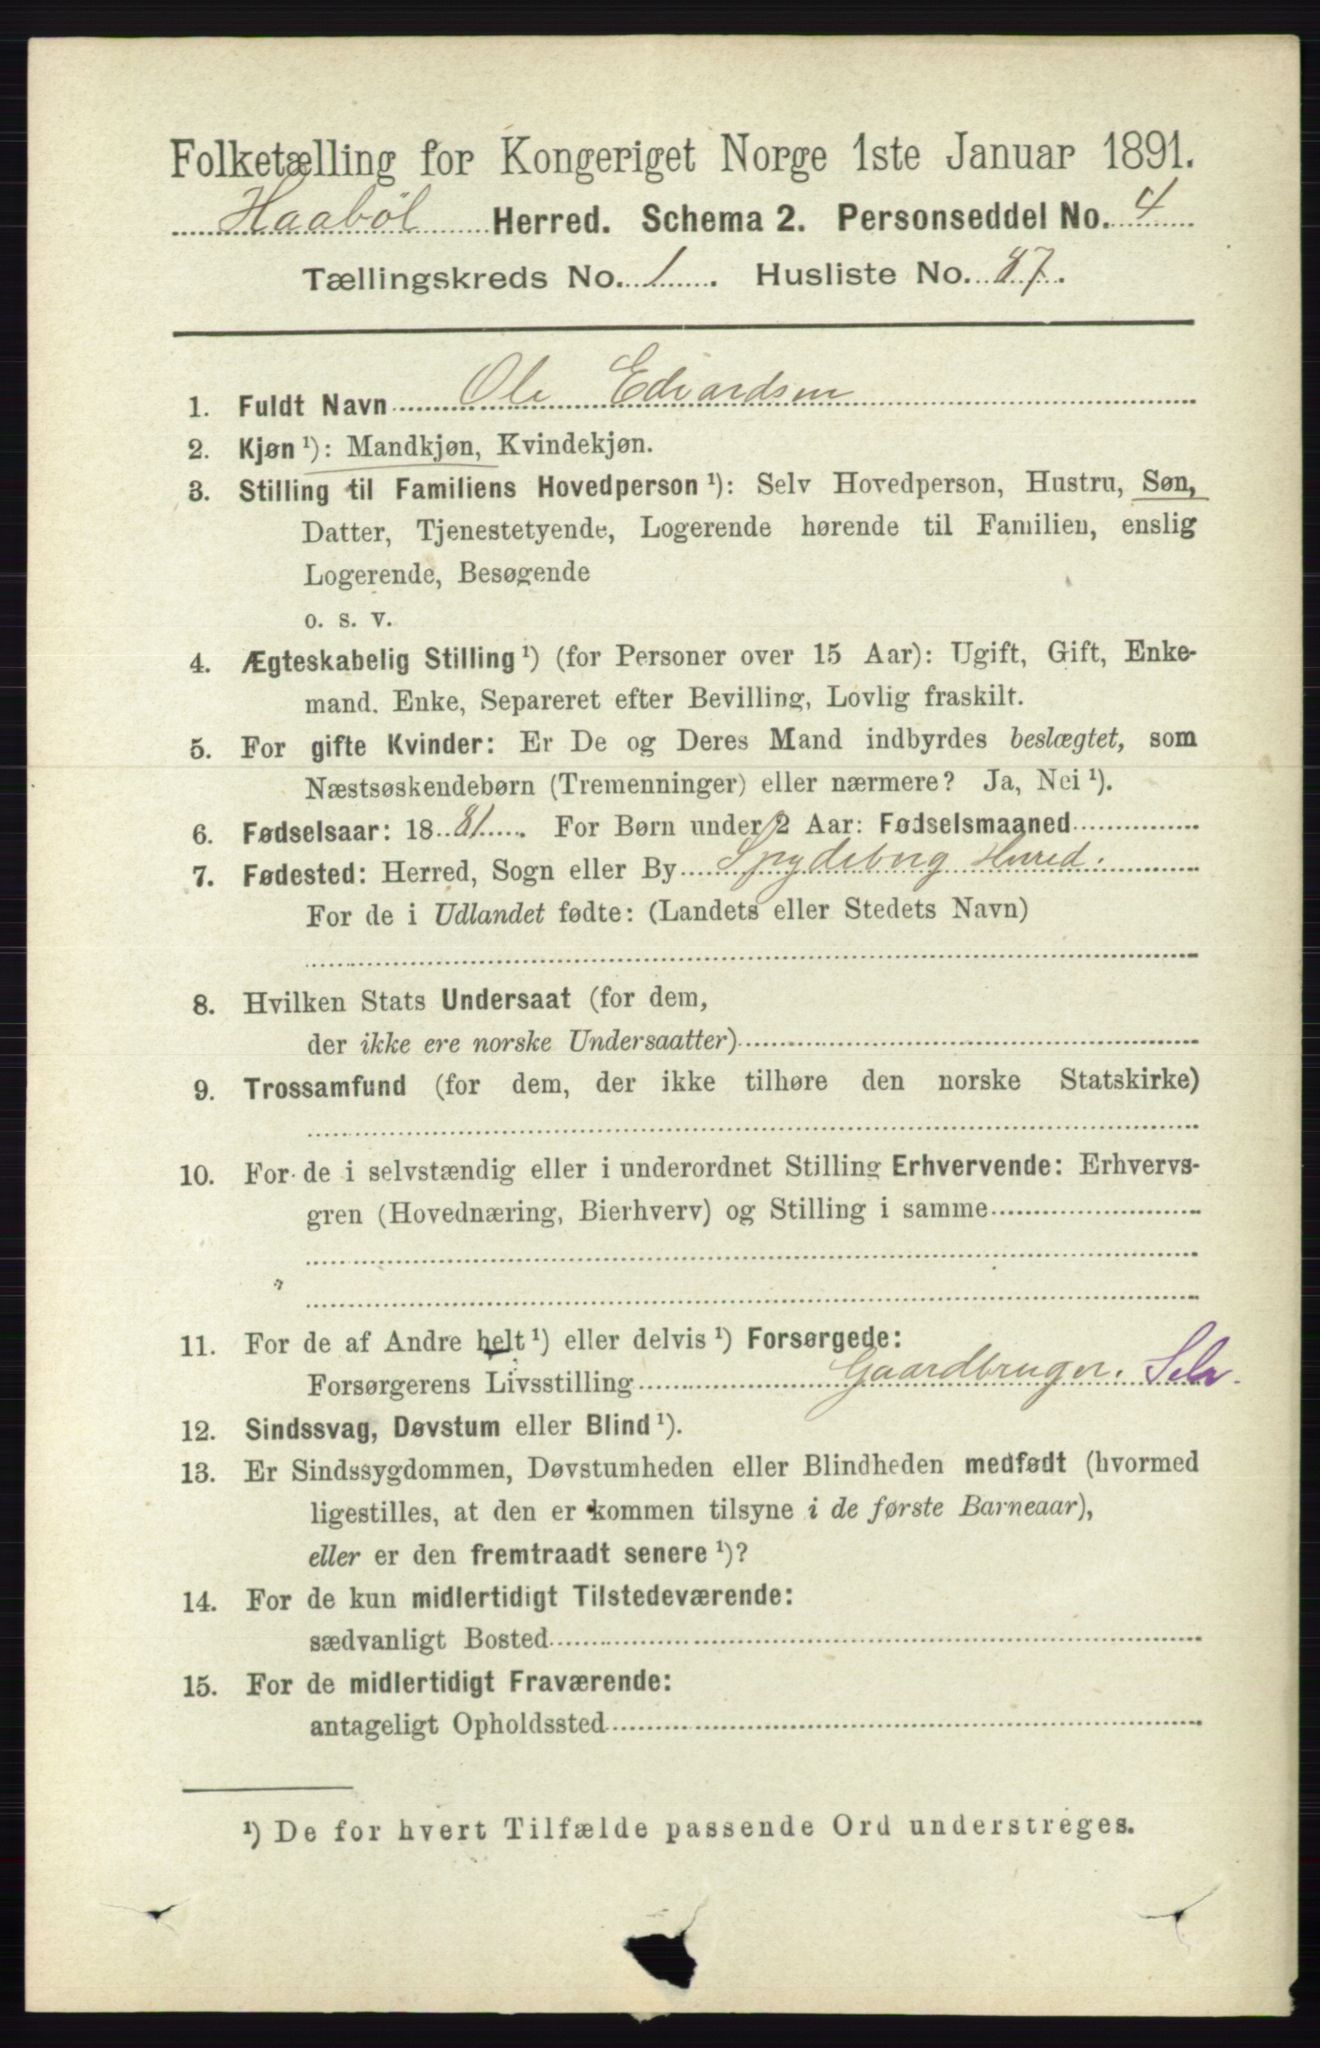 Folketælling for Kongeriget Norge 1ste Januar 1891.
Haabøl Herred. Schema 2. Personseddel No. 4
Tællingskreds No. 1. Husliste No. 87.
1. Fuldt Navn Ole Edvardsen
2. Kjøn ¹): Mandkjøn, Kvindekjøn.
3. Stilling til Familiens Hovedperson ¹): Selv Hovedperson, Hustru, Søn,
Datter, Tjenestetyende, Logerende hørende til Familien, enslig
Logerende, Besøgende
o. s. v.
4. Ægteskabelig Stilling ¹) (for Personer over 15 Aar): Ugift, Gift, Enke-
mand. Enke, Separeret efter Bevilling, Lovlig fraskilt.
5. For gifte Kvinder: Er De og Deres Mand indbyrdes beslægtet, som
Næstsøskendebørn (Tremenninger) eller nærmere? Ja, Nei ¹).
6. Fødselsaar: 18 81. For Børn under 2 Aar: Fødselsmaaned
7. Fødested: Herred, Sogn eller By Spydeberg Herred.
For de i Udlandet fødte: (Landets eller Stedets Navn)
8. Hvilken Stats Undersaat (for dem,
der ikke ere norske Undersaatter)
9. Trossamfund (for dem, der ikke tilhøre den norske Statskirke)
10. For de i selvstændig eller i underordnet Stilling Erhvervende: Erhvervs-
gren (Hovednæring, Bierhverv) og Stilling i samme
11. For de af Andre helt ¹) eller delvis ¹) Forsørgede:
Forsørgerens Livsstilling Gaardbruger. Selv.
12. Sindssvag, Døvstum eller Blind ¹).
13. Er Sindssygdommen, Døvstumheden eller Blindheden medfødt (hvormed
ligestilles, at den er kommen tilsyne i de første Barneaar),
eller er den fremtraadt senere ¹)?
14. For de kun midlertidigt Tilstedeværende:
sædvanligt Bosted
15. For de midlertidigt Fraværende:
antageligt Opholdssted
¹) De for hvert Tilfælde passende Ord understreges.